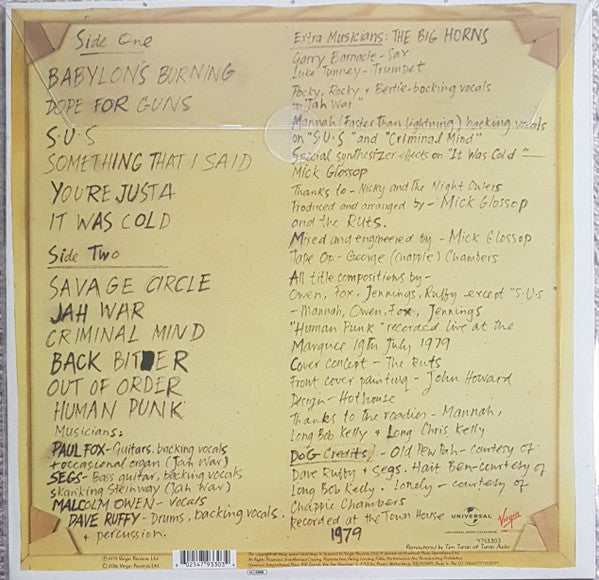 Side One
BABYLON'S BURNING
DOPE FOR GUNS
S·U·S
SOMETHING THAT I SAID
YOU'RE JUSTA
IT WAS COLD
Side Two
SAVAGE CIRCLE
JAH WAR
CRIMINAL MIND
BACK BITER
OUT OF ORDER
HUMAN PUNK
Musicians:
PAUL FOX-Guitars, backing vocals
+ occasional organ (Jah War)
SEGS-Bass guitar, backing vocals
skanking Steinway (Jah War)
MALCOLM OWEN-Vocals
DAVE RUFFY-Drums, backing vocals
+ percussion.
Extra Musicians: THE BIG HORNS
Garry Barnacle-Sax
Luke Tunney-Trumpet
Pocky, Rocky + Bertie-backing vocals
on "Jah War"
Mannah (Faster than lightning) backing vocals
on "S·U·S" and "Criminal Mind"
Special synthesizer effects on "It Was Cold"-
Mick Glossop
Thanks to-Nicky and The Night Divers
Produced and arranged by-Mick Glossop
and the Ruts.
Mixed and engineered by-Mick Glossop
Tape Op-George (Chappie) Chambers
All title compositions by-
Owen, Fox, Jennings, Ruffy except "S·U·S
-Mannah, Owen, Fox, Jennings
"Human Punk" recorded live at the
Marquee 19th July 1979
Cover concept-The Ruts
Front cover painting-John Howard
Design-Hothouse
Thanks to the roadies-Mannah,
Long Bob Kelly & Long Chris Kelly
DOG Credits,-Old Pew Pah-courtesy of
Dave Ruffy & Segs. Hait Ben-courtesy of
Long Bob Kelly. Lonely-courtesy of
Chappie Chambers
Recorded at the Town House
1979
UNIVERSAL
Virgin
4793303
Remastered by Tim Turan at Turan Audio
℗ 1979 Virgin Records Ltd.
© 2016 Virgin Records Ltd.
6 02547 93303 4